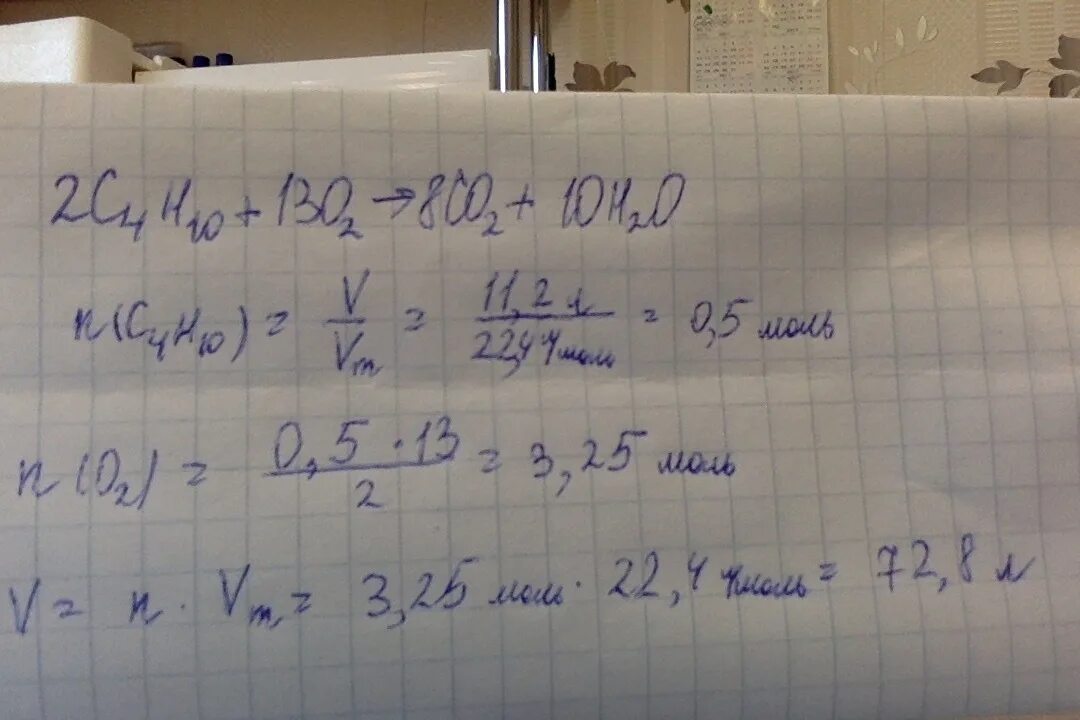 2C₄H₁₀ + 13O₂ → 8CO₂ + 10H₂O
n(C₄H₁₀) = V/Vm = 11,2 л / 22,4 л/моль = 0,5 моль
n(O₂) = 0,5 · 13 / 2 = 3,25 моль
V = n · Vm = 3,25 моль · 22,4 л/моль = 72,8 л